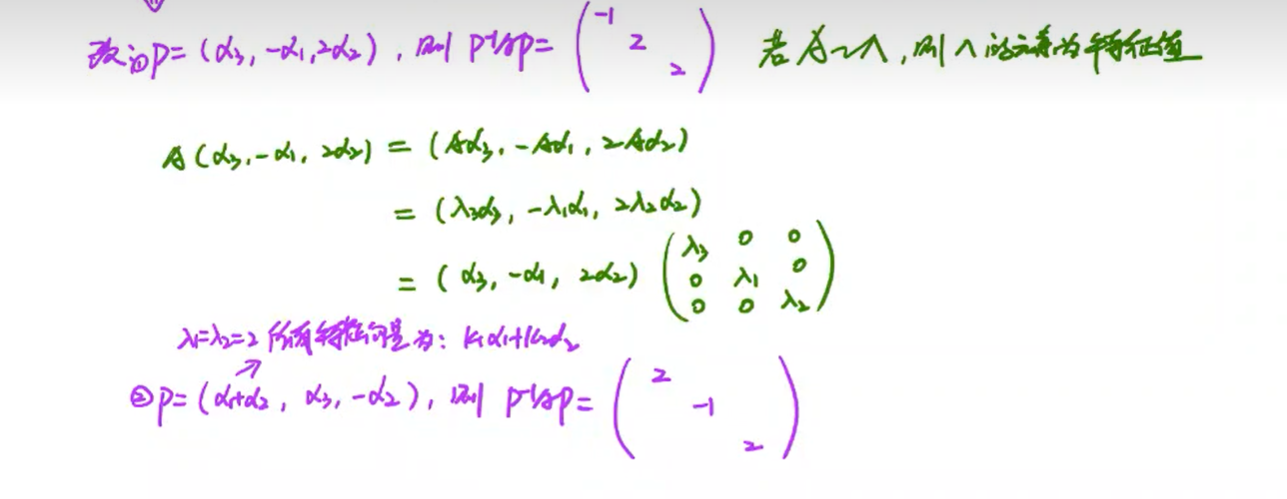 改①P=(α₃, -α₁, 2α₂), 则 P⁻¹AP= (-1 2 2) 若A~Λ, 则Λ的元素为特征值
A(α₃, -α₁, 2α₂) = (Aα₃, -Aα₁, 2Aα₂)
= (λ₃α₃, -λ₁α₁, 2λ₂α₂)
= (α₃, -α₁, 2α₂) (λ₃ 0 0 0 λ₁ 0 0 0 λ₂)
λ₁=λ₂=2 所有特征向量为: k₁α₁+k₂α₂
②P=(α₁+α₂, α₃, -α₂), 则 P⁻¹AP= (2 -1 2)